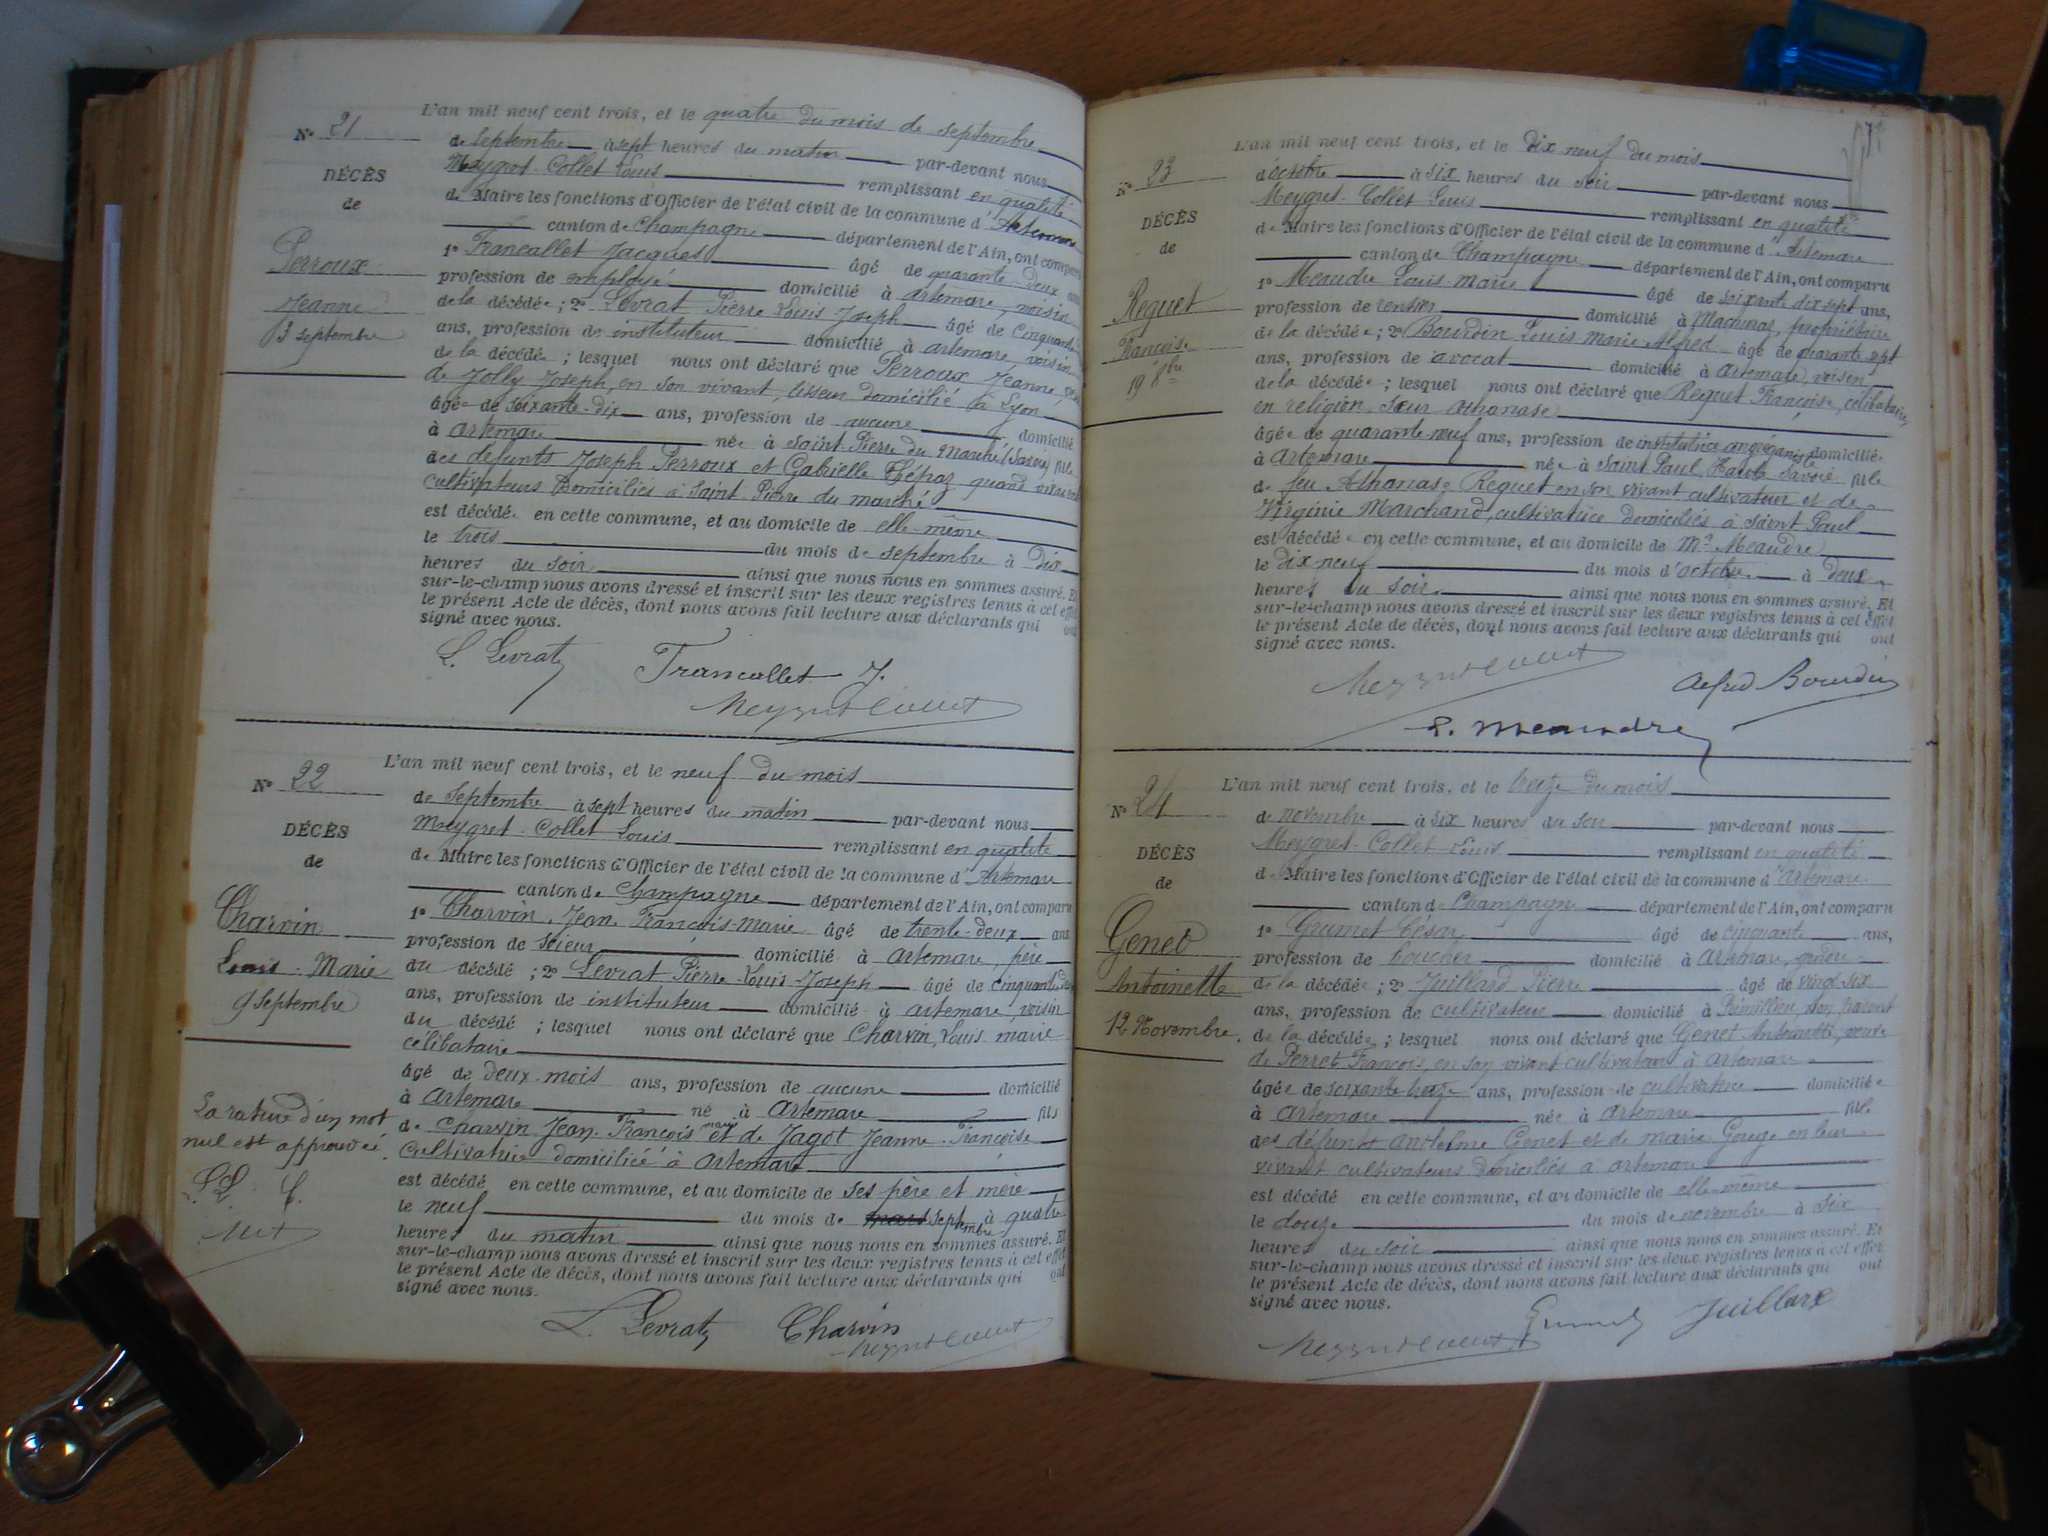 L'an mil neuf cent trois, et le quatre du mois de septembre
N° 21
de septembre à sept heures du matin par-devant nous
Meygret-Collet Louis remplissant en qualité
DÉCÈS
de Maire les fonctions d'Officier de l'état civil de la commune d'Artemare
de
canton de Champagne département de l'Ain, ont comparu
Perroux
1° Francallet Jacques âgé de quarante-deux ans
profession de employé domicilié à Artemare, voisin
Jeanne
de la décédée ; 2° Levrat Pierre Louis Joseph âgé de cinquante
3 septembre
ans, profession de instituteur domicilié à Artemare, voisin
de la décédée ; lesquel nous ont déclaré que Perroux Jeanne,
de Jolly Joseph, en son vivant, tisseur domicilié à Lyon
âgée de soixante-dix ans, profession de aucune domicilié
à Artemare née à Saint Pierre du Marché (Savoie) fille
des défunts Joseph Perroux et Gabrielle quand vivaient
cultivateurs domiciliés à Saint Pierre du marché
est décédée en cette commune, et au domicile de elle-même
le trois du mois de septembre à Dix
heures du soir ainsi que nous nous en sommes assuré. Et
sur-le-champ nous avons dressé et inscrit sur les deux registres tenus à cet effet
le présent Acte de décès, dont nous avons fait lecture aux déclarants qui ont
signé avec nous.
L. Levrat Francallet J.
Meygret Collet
L'an mil neuf cent trois, et le neuf du mois
N° 22
de septembre à sept heures du matin par-devant nous
Meygret-Collet Louis remplissant en qualité
DÉCÈS
de Maire les fonctions d'Officier de l'état civil de la commune d'Artemare
de
canton de Champagne département de l'Ain, ont comparu
Charvin
1° Charvin Jean François-Marie âgé de trente-deux ans
profession de scieur domicilié à Artemare, père
Louis-Marie
du décédé ; 2° Levrat Pierre-Louis-Joseph âgé de cinquante
9 septembre
ans, profession de instituteur domicilié à Artemare, voisin
du décédé ; lesquel nous ont déclaré que Charvin, Louis-marie
célibataire
âgé de deux mois ans, profession de aucune domicilié
à Artemare né à Artemare fils
La rature d'un mot
nul est approuvée.
de Charvin Jean-François marie et de Jagot Jeanne-Françoise
cultivatrice domiciliée à Artemare
est décédé en cette commune, et au domicile de ses père et mère
le neuf du mois de septembre à quatre
heures du matin ainsi que nous nous en sommes assuré. Et
sur-le-champ nous avons dressé et inscrit sur les deux registres tenus à cet effet
le présent Acte de décès, dont nous avons fait lecture aux déclarants qui ont
signé avec nous.
L. Levrat Charvin
Meygret Collet
L'an mil neuf cent trois, et le dix neuf du mois
N° 23
d'octobre à six heures du soir par-devant nous
Meygret-Collet Louis remplissant en qualité
DÉCÈS
de Maire les fonctions d'Officier de l'état civil de la commune d'Artemare
de
canton de Champagne département de l'Ain, ont comparu
Reguet
1° Meaudre Louis-Marie âgé de soixante dix sept ans,
profession de rentier domicilié à Machuraz, propriétaire
Françoise
de la décédée ; 2° Bourdin Louis marie Alfred âgé de quarante sept
19 8bre
ans, profession de avocat domicilié à Artemare, voisin
de la décédée ; lesquel nous ont déclaré que Reguet Françoise, célibataire
en religion, sœur Athanase
âgée de quarante neuf ans, profession de institutrice domiciliée
à Artemare née à Saint Paul, Haute Savoie fille
de feu Athanase Reguet en son vivant cultivateur et de
Virginie Marchand, cultivatrice domiciliés à Saint Paul
est décédée en cette commune, et au domicile de Mr Meaudre
le dix neuf du mois d'octobre à deux
heures du soir ainsi que nous nous en sommes assuré. Et
sur-le-champ nous avons dressé et inscrit sur les deux registres tenus à cet effet
le présent Acte de décès, dont nous avons fait lecture aux déclarants qui ont
signé avec nous.
Meygret Collet Alfred Bourdin
L. Meaudre
L'an mil neuf cent trois, et le treize du mois
N° 24
de novembre à six heures du soir par-devant nous
Meygret-Collet Louis remplissant en qualité
DÉCÈS
de Maire les fonctions d'Officier de l'état civil de la commune d'Artemare
de
canton de Champagne département de l'Ain, ont comparu
Genet
1° Grumet César âgé de cinquante ans,
profession de boucher domicilié à Artemare, gendre
Antoinette
de la décédée ; 2° Juillard Pierre âgé de vingt six
12 Novembre.
ans, profession de cultivateur domicilié à non parent
de la décédée ; lesquel nous ont déclaré que Genet Antoinette, veuve
de Perret François, en son vivant cultivateur à Artemare
âgée de soixante treize ans, profession de cultivatrice domiciliée
à Artemare née à Artemare fille
des défunts Anthelme Genet et de marie Gouge en leur
vivant cultivateurs domiciliés à Artemare
est décédé en cette commune, et au domicile de elle-même
le douze du mois de novembre à six
heures du soir ainsi que nous nous en sommes assuré. Et
sur-le-champ nous avons dressé et inscrit sur les deux registres tenus à cet effet
le présent Acte de décès, dont nous avons fait lecture aux déclarants qui ont
signé avec nous.
Grumet Juillard
Meygret Collet